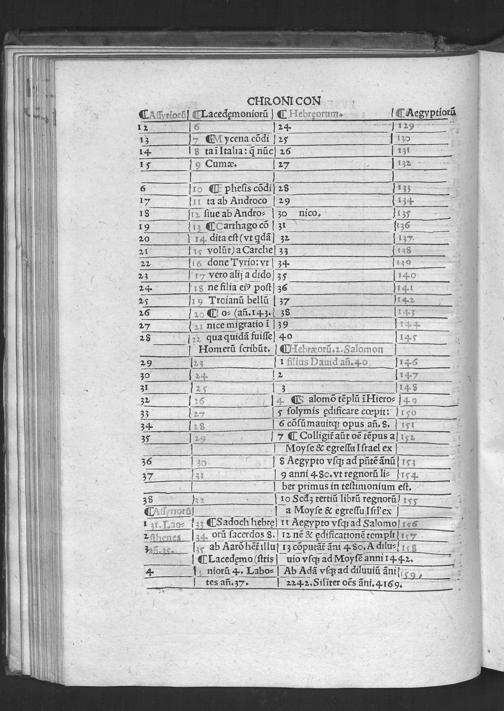 CHRONICON
¶Assyriorũ ¶Lacedęmoniorũ ¶Hebręorum. ¶Aegyptiorũ
12 6 24 129
13 7 ¶Mycena cõdi 25 130
14 8 ta i Italia: q̃ nũc 26 131
15 9 Cumæ. 27 132
6 10 ¶Ephesis cõdi 28 133
17 11 ta ab Androco 29 134
18 12 siue ab Andro- 30 nico. 135
19 13 ¶Carthago cõ 31 136
20 14 dita est (vt qdã 32 137
21 15 volũt) a Carche 33 138
22 16 done Tyrio: vt 34 139
23 17 vero alij a dido 35 140
24 18 ne filia eiꝰ post 36 141
25 19 Troianũ bellũ 37 142
26 20 ¶Io⁹ (añ.143. 38 143
27 21 nice migratio ĩ 39 144
28 22 qua quidã fuisse 40 145
Homerũ scribũt. ¶Hebræorũ.2.Salomon
29 23 1 filius Dauid añ.40 146
30 24 2 147
31 25 3 148
32 26 4 ¶Salomõ tẽplũ ĩ Hieros 149
33 27 5 solymis ędificare cœpit: 150
34 28 6 cõsũmauitq; opus añ.8. 151
35 29 7 ¶Colligit̃ aũt oẽ tẽpus a 152
Moyse & egressu Israel ex
36 30 8 Aegypto vsq; ad pñtẽ ãnũ 153
37 31 9 anni 480. vt regnorũ li- 154
ber primus in testimonium est.
38 32 10 Scd3 tertiũ librũ regnorũ 155
¶Assyriorũ a Moyse & egressu Isrl' ex
1 31. Lao- 33 ¶Sadoch hebrę 11 Aegypto vsq; ad Salomo 156
2 sthenes 34 orũ sacerdos 8. 12 nẽ & ędificationẽ templi 157
3 añ.35. 35 ab Aarõ hẽt illu 13 cõputãt̃ ãni 480. A dilu- 158
¶Lacedęmo (stris uio vsq; ad Moysẽ anni 1442.
4 niorũ 4. Labo- Ab Adã vsq; ad diluuiũ ãni 159
tes añ.37. 2242. Siliter oẽs ãni. 4169.